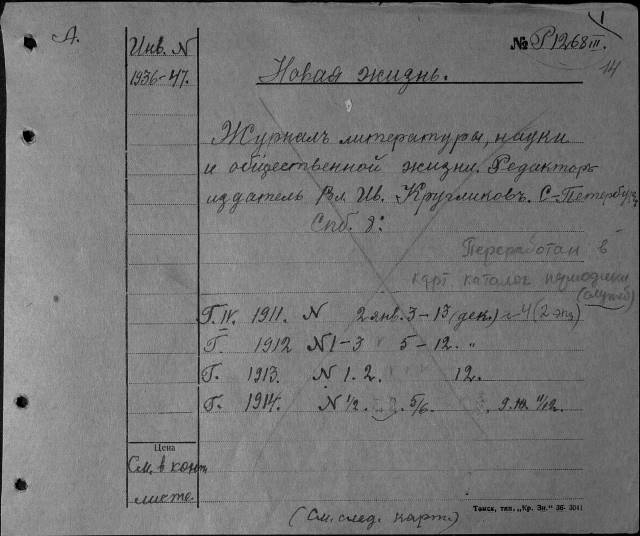 А.
Инв. N
1936-47.
№ Р1268 III.
14
Новая жизнь.
Журналъ литературы, науки
и общественной жизни. Редакторъ
издатель Вл. Ив. Кругликовъ. С-Петербург
Спб. 8:
Переработан в
карт каталог периодики
(служеб)
Г. IV. 1911. N 2 янв. 3-13 (дек.) 4 (2 экз)
Г. 1912 N 1-3 5-12. "
Г. 1913. N 1. 2. 12.
Г. 1914. N 1/2. 5/6. 9. 10. 11/12.
Цена
См. в конт
листе.
(См. след. карт.)
Томск, тип. „Кр. Зн." 36- 3041